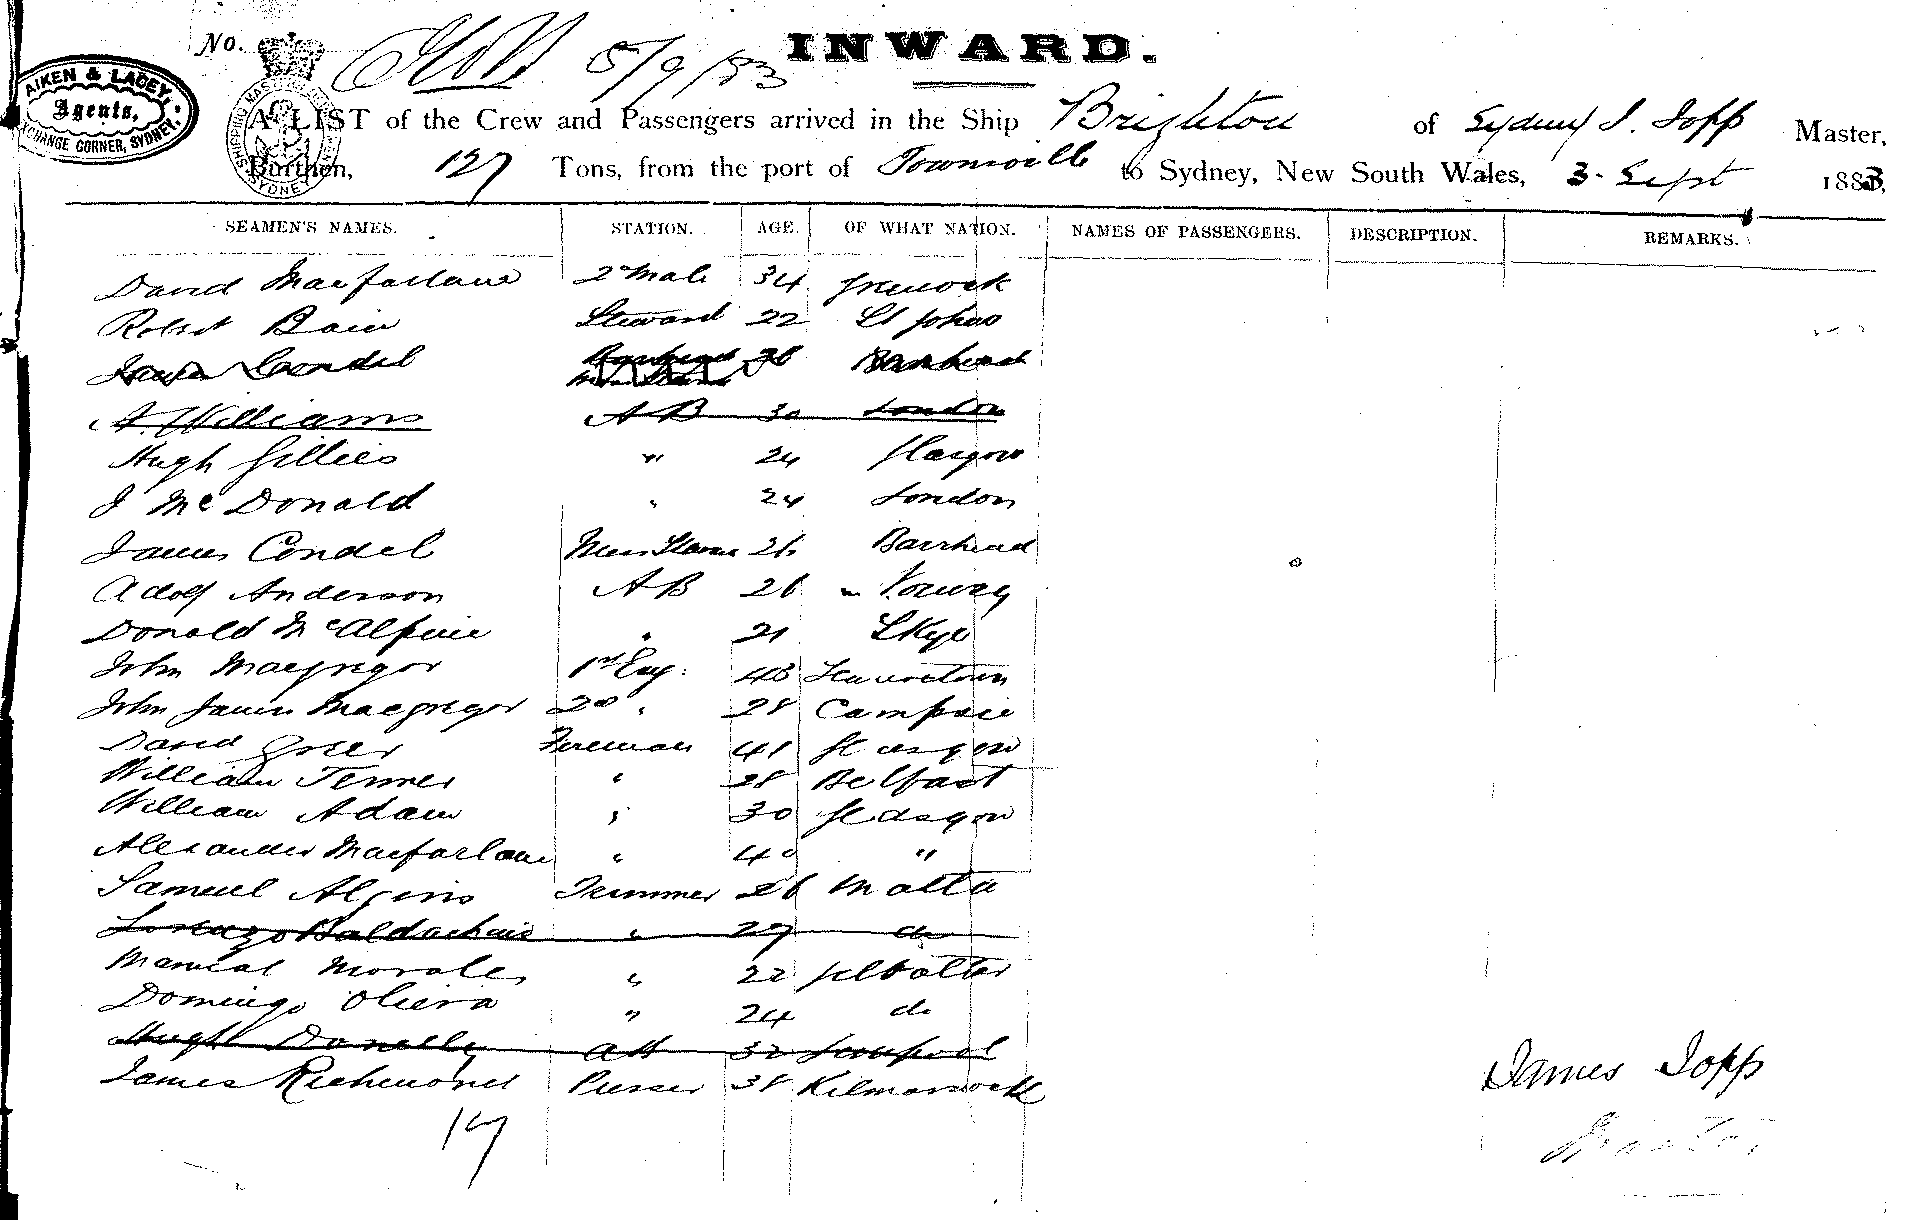 No. 5/9/83 INWARD.
AIKEN & LACEY,
Agents,
EXCHANGE CORNER, SYDNEY.
SHIPPING MASTER SYDNEY
A LIST of the Crew and Passengers arrived in the Ship Brighton of Sydney J. Topp Master,
Burthen, 127 Tons, from the port of Townsville to Sydney, New South Wales, 3 Sept 1883,
SEAMEN'S NAMES. STATION. AGE. OF WHAT NATION. NAMES OF PASSENGERS. DESCRIPTION. REMARKS.
David Macfarlane 2nd Mate 34 Greenock
Robert Bain Steward 22 St Johns
James Condel Barrhead
A. Williams AB 30 London
Hugh Gillies " 24 Glasgow
J McDonald " 24 London
James Condel Mess Room 26 Barrhead
Adolf Anderson AB 26 Norway
Donald McAlpine " 21 Skye
John Macgregor 1st Eng. 43
John James Macgregor 2nd " 28 Campsie
David Greer Fireman 41 Glasgow
William Jenner " 28 Belfast
William Adam " 30 Glasgow
Alexander Macfarlane " 40 "
Samuel Trimmer 26 Malta
Lorenzo Baldachino " 27 do
Manuel Morales " 22 Gibralter
Domingo Oliera " 24 do
Hugh Donelly AB 32 Liverpool
James Richmond Purser 38 Kilmarnock
17
James Topp
Master